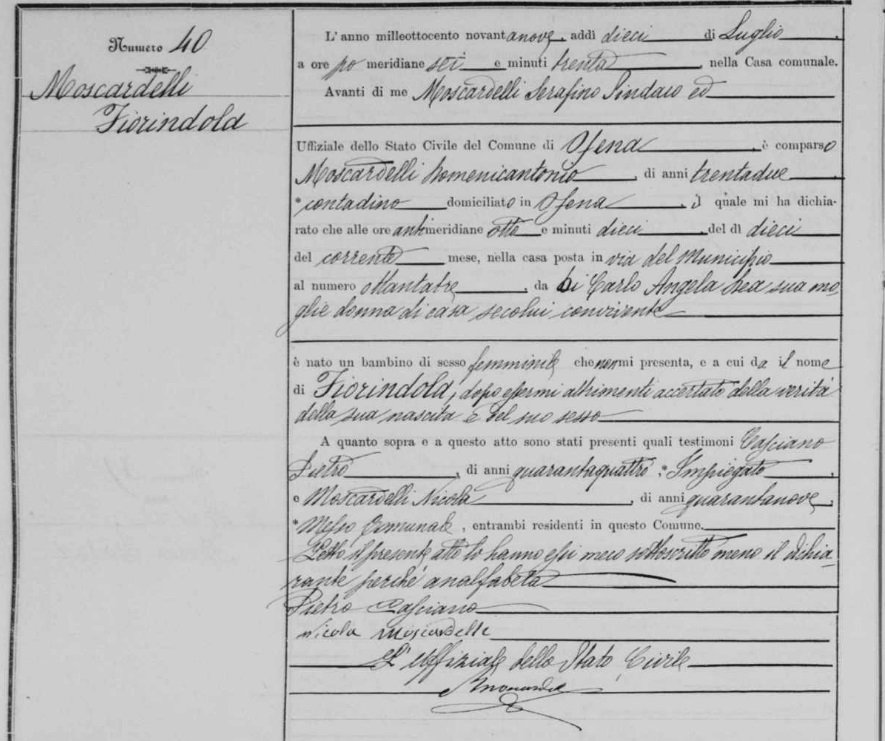 Numero 40
Moscardelli
Fiorindola
L'anno milleottocento novantanove, addì dieci di Luglio,
a ore po meridiane sei e minuti trenta, nella Casa comunale.
Avanti di me Moscardelli Serafino Sindaco ed
Uffiziale dello Stato Civile del Comune di Ofena, è comparso
Moscardelli Domenicantonio, di anni trentadue,
contadino domiciliato in Ofena, il quale mi ha dichia-
rato che alle ore antimeridiane otto e minuti dieci, del dì dieci
del corrente mese, nella casa posta in via del Municipio
al numero ottantatre, da Di Carlo Angela sua mo-
glie donna di casa secolui convivente
è nato un bambino di sesso femminile che non mi presenta, e a cui dà il nome
di Fiorindola, dopo essermi altrimenti accertato della verità
della sua nascita e del suo sesso
A quanto sopra e a questo atto sono stati presenti quali testimoni Casciano
Pietro, di anni quarantaquattro, Impiegato,
e Moscardelli Nicola, di anni quarantanove,
Messo Comunale, entrambi residenti in questo Comune.
Letto il presente atto lo hanno essi meco sottoscritto meno il dichia-
rante perché analfabeta
Pietro Casciano
Nicola Moscardelli
L'Uffiziale dello Stato Civile